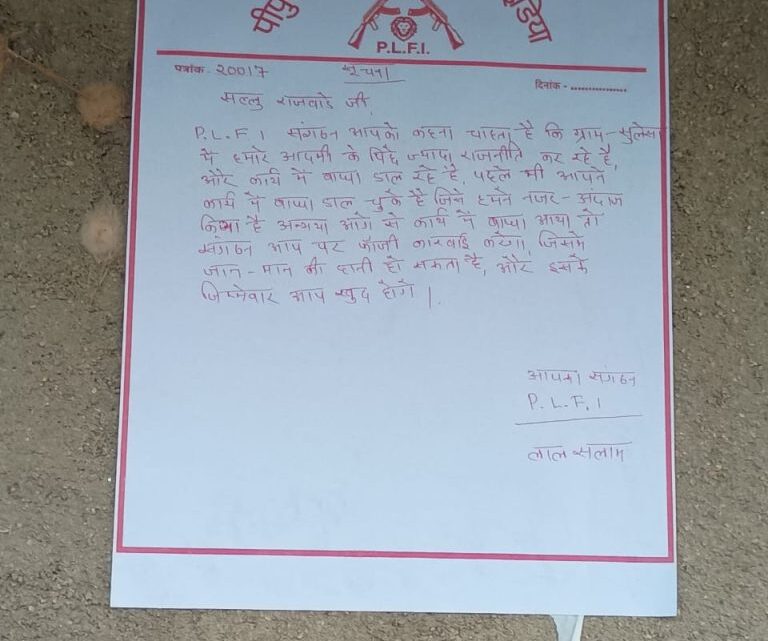 पीपु
डिया
P.L.F.I.
पत्रांक - 20017 सूचना
दिनांक - ................
मल्लु राजवाडे जी,
P.L.F.I संगठन आपको कहना चाहता है कि ग्राम - सुलेसा
में हमारे आदमी के पिछे ज्यादा राजनीति कर रहे है,
और कार्य में बाधा डाल रहे है, पहले भी आपने
कार्य में बाधा डाल चुके है जिसे हमने नजर - अंदाज
किया है अन्यथा आगे से कार्य में बाधा आया तो
संगठन आप पर फौजी कारवाई करेगा, जिसमे
जान - मान की हानी हो सकता है, और इसके
जिम्मेवार आप खुद होंगे ।
आपका संगठन
P.L.F.I
लाल सलाम